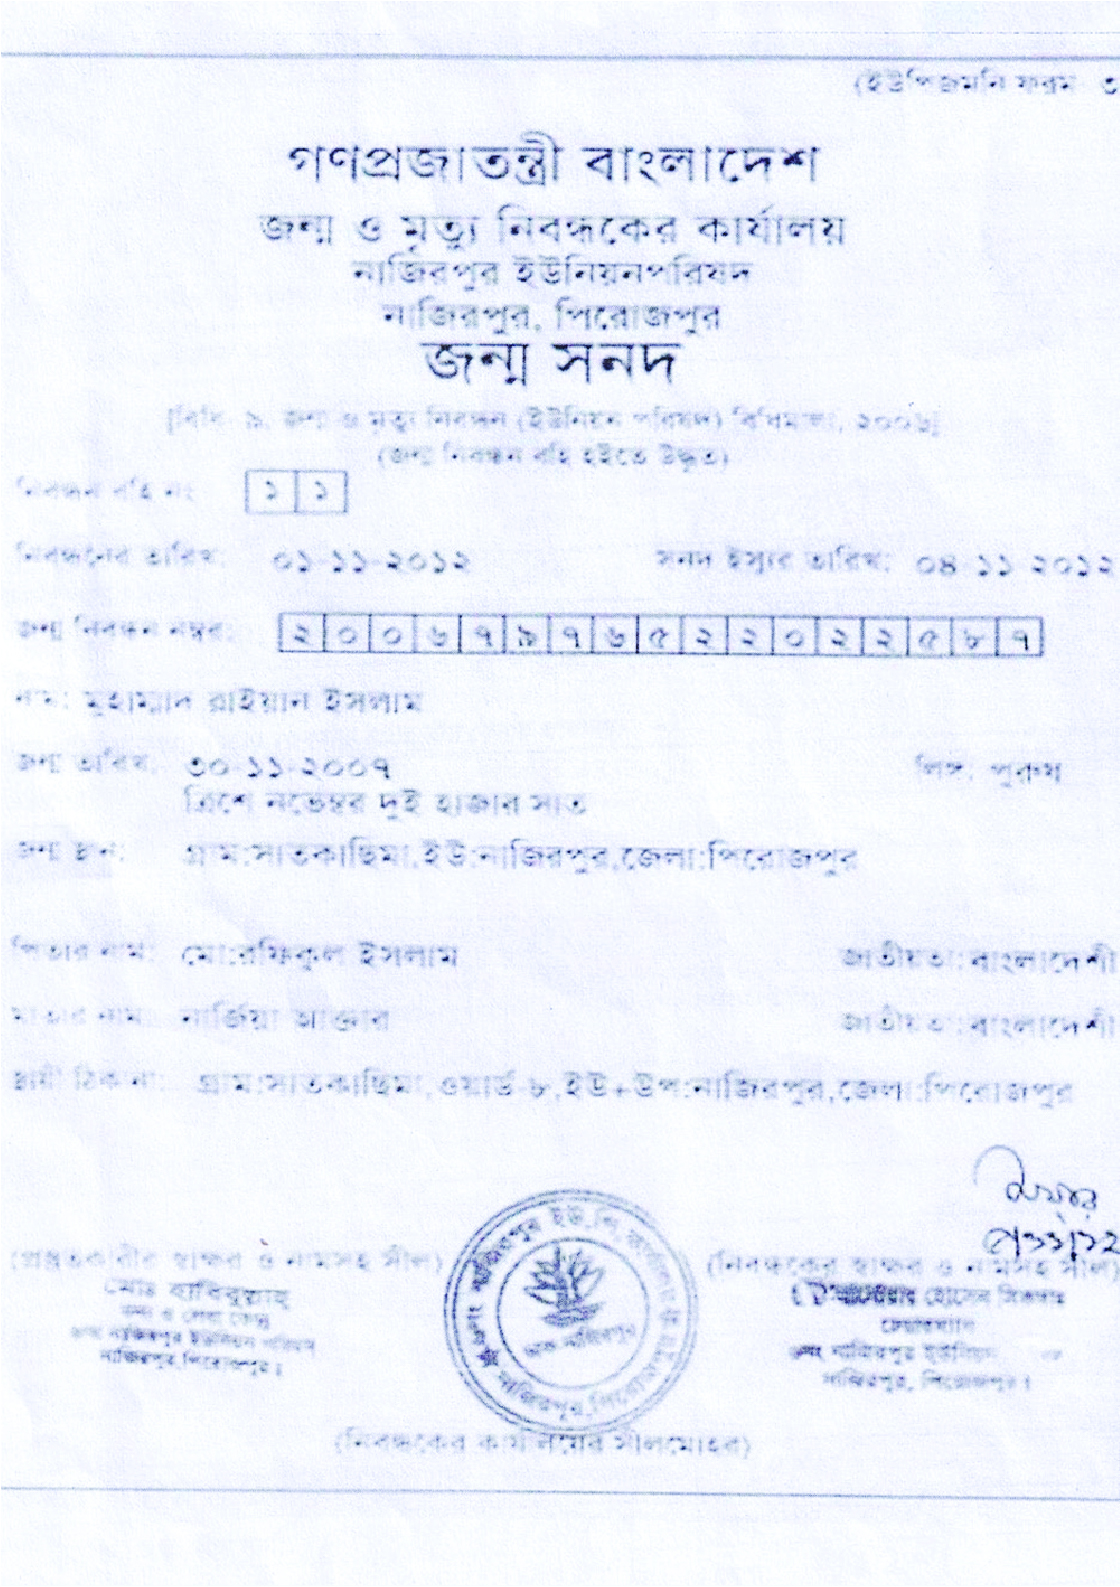 (ইউপিজমনি ফরম- ৩
গণপ্রজাতন্ত্রী বাংলাদেশ
জন্ম ও মৃত্যু নিবন্ধকের কার্যালয়
নাজিরপুর ইউনিয়নপরিষদ
নাজিরপুর, পিরোজপুর
জন্ম সনদ
[বিধি- ৯, জন্ম ও মৃত্যু নিবন্ধন (ইউনিয়ন পরিষদ) বিধিমালা, ২০০৬]
(জন্ম নিবন্ধন বহি হইতে উদ্ধৃত)
নিবন্ধন বহি নং ১ ১
নিবন্ধনের তারিখ: ০১-১১-২০১২ সনদ ইস্যুর তারিখ: ০৪-১১-২০১২
জন্ম নিবন্ধন নম্বর: ২ ০ ০ ৬ ৭ ৯ ৭ ৬ ৫ ২ ২ ০ ২ ২ ৫ ৮ ৭
নাম: মুহাম্মাদ রাইয়ান ইসলাম
জন্ম তারিখ: ৩০-১১-২০০৭ লিঙ্গ: পুরুষ
ত্রিশে নভেম্বর দুই হাজার সাত
জন্ম স্থান: গ্রাম:সাতকাছিমা,ইউ:নাজিরপুর,জেলা:পিরোজপুর
পিতার নাম: মো:রফিকুল ইসলাম জাতীয়তা:বাংলাদেশী
মাতার নাম: নার্জিয়া আক্তার জাতীয়তা:বাংলাদেশী
স্থায়ী ঠিকানা: গ্রাম:সাতকাছিমা,ওয়ার্ড-৮,ইউ+উপ:নাজিরপুর,জেলা:পিরোজপুর
(প্রস্তুতকারীর স্বাক্ষর ও নামসহ সীল) (নিবন্ধকের স্বাক্ষর ও নামসহ সীল)
মোঃ হাবিবুল্লাহ্
তথ্য ও সেবা কেন্দ্র
নাজিরপুর ইউনিয়ন পরিষদ
নাজিরপুর,পিরোজপুর।
নাজিরপুর ইউ.পি. কার্যালয়
নাজিরপুর, পিরোজপুর
হোসেন
চেয়ারম্যান
নাজিরপুর ইউনিয়ন
নাজিরপুর, পিরোজপুর।
(নিবন্ধকের কার্যালয়ের সীলমোহর)